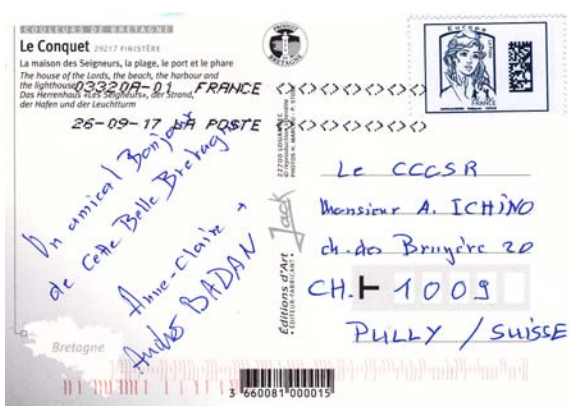 COULEURS DE BRETAGNE
Le Conquet 29217 FINISTÈRE
La maison des Seigneurs, la plage, le port et le phare
The house of the Lords, the beach, the harbour and
the lighthouse
Das Herrenhaus «Les Seigneurs», der Strand,
der Hafen und der Leuchtturm
03320A-01 FRANCE
26-09-17 LA POSTE
Un amical Bonjour
de cette Belle Bretagne
Anne-Claire +
André BADAN
Bretagne
PRODUIT
BRETAGNE
Jack
Editions d'Art
• ÉDITEUR-FABRICANT •
22700 LOUANNEC
EUROPE
FRANCE
Le CCCSR
Monsieur A. ICHINO
ch. des Bruyère 20
CH. 1009
PULLY / SUISSE
3 660081 000015